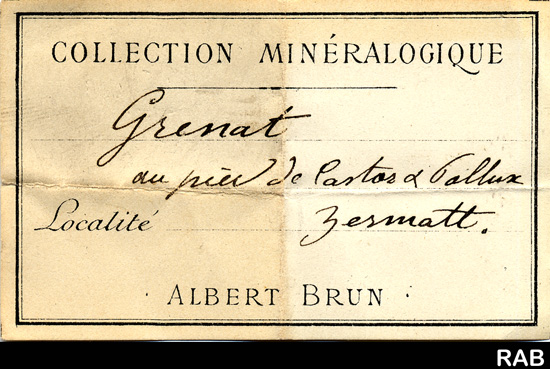 COLLECTION MINÉRALOGIQUE
Grenat
au pied de Castor & Pollux
Localité Zermatt.
ALBERT BRUN
RAB